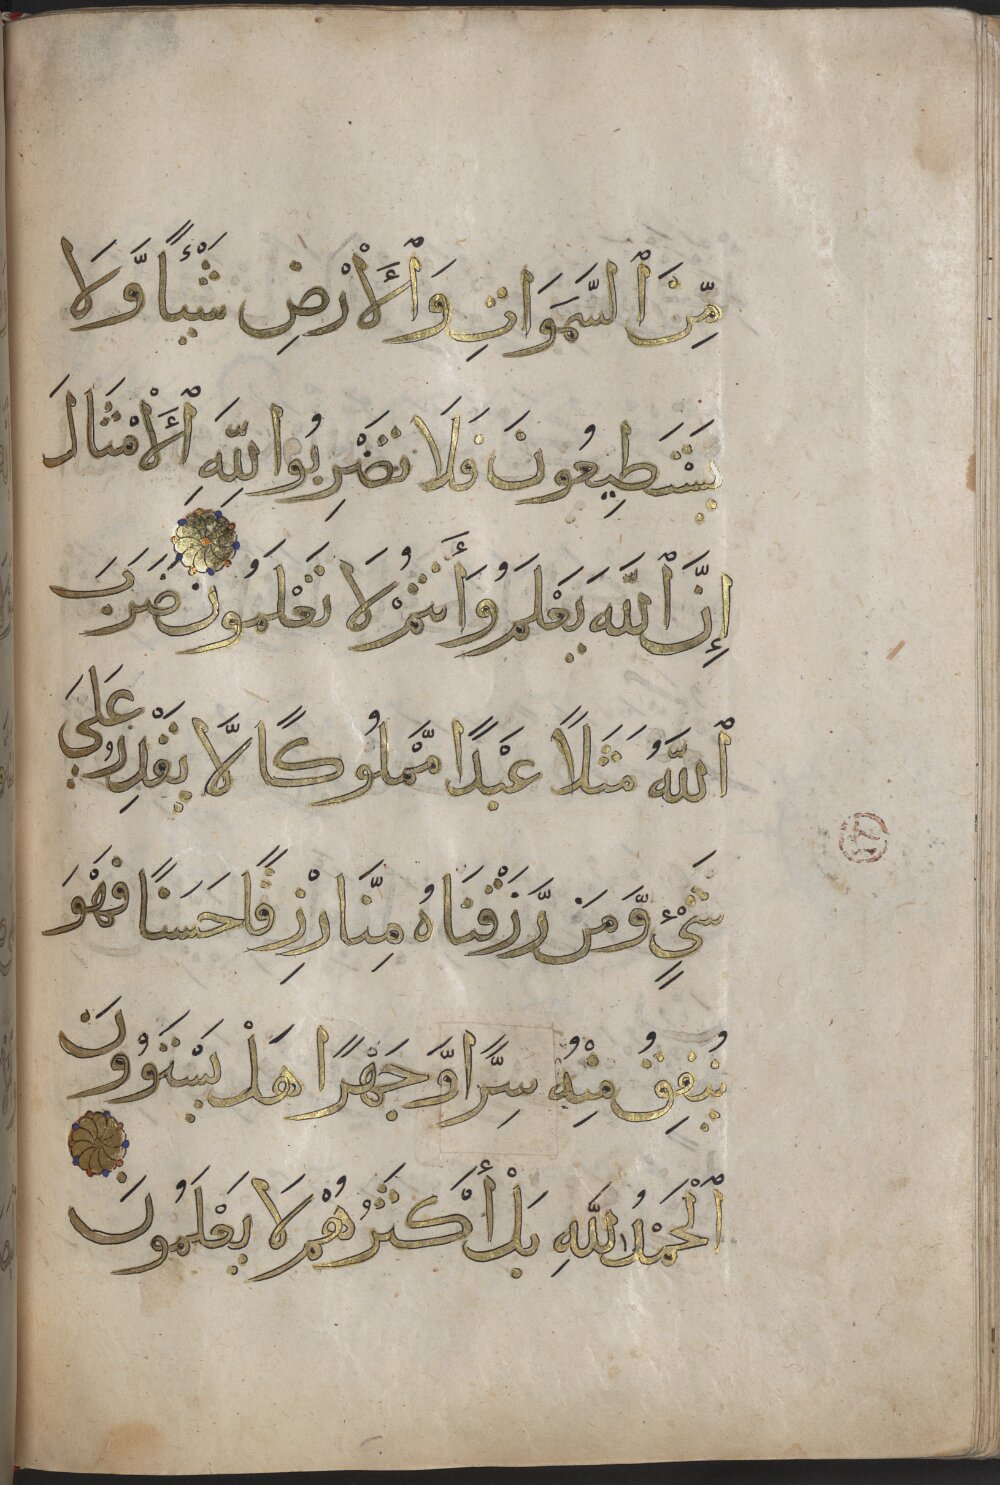 مِّنَ ٱلسَّمَوَاتِ وَٱلْأَرْضِ شَيْـًٔا وَّلَا
يَسْتَطِيعُونَ فَلَا تَضْرِبُوا لِلَّهِ ٱلْأَمْثَالَ
إِنَّ ٱللَّهَ يَعْلَمُ وَأَنتُمْ لَا تَعْلَمُونَ ضَرَبَ
ٱللَّهُ مَثَلًا عَبْدًا مَّمْلُوكًا لَّا يَقْدِرُ عَلَي
شَيْءٍ وَّمَن رَّزَقْنَاهُ مِنَّا رِزْقًا حَسَنًا فَهْوَ
يُنفِقُ مِنْهُ سِرًّا وَّجَهْرًا هَلْ يَسْتَوُونَ
ٱلْحَمْدُ لِلَّهِ بَلْ أَكْثَرُهُمْ لَا يَعْلَمُونَ